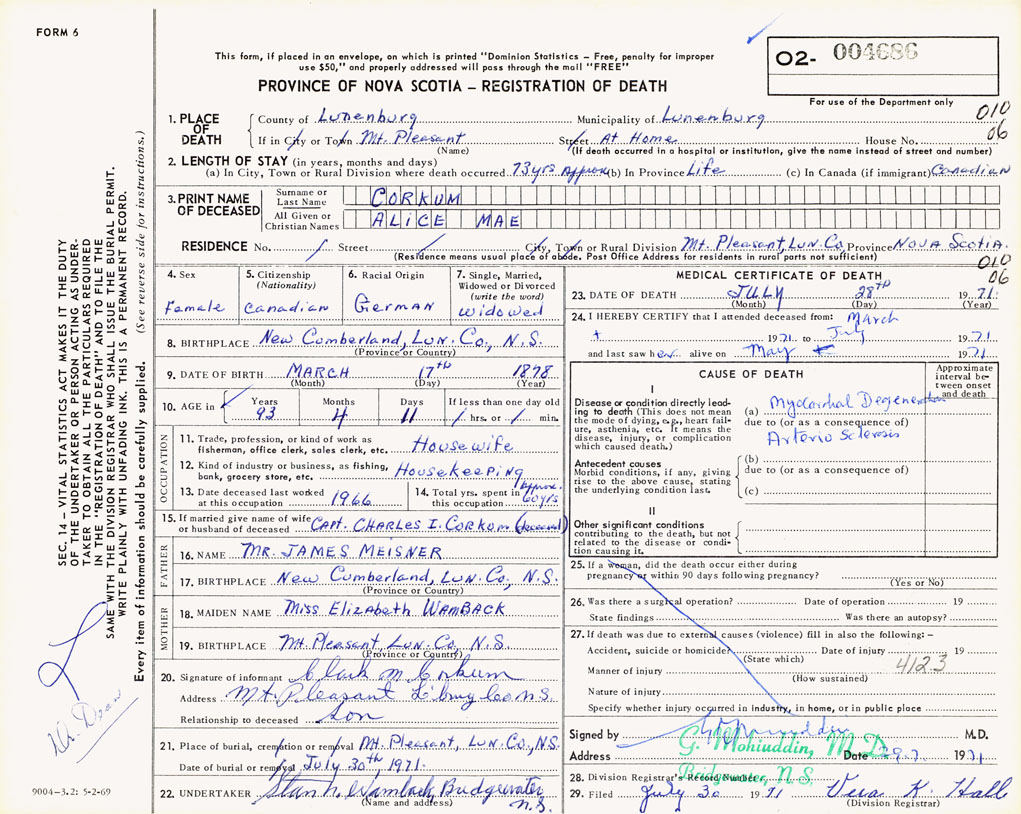 FORM 6
This form, if placed in an envelope, on which is printed "Dominion Statistics – Free, penalty for improper
use $50," and properly addressed will pass through the mail "FREE"
PROVINCE OF NOVA SCOTIA – REGISTRATION OF DEATH
O2- 004686
For use of the Department only
010
06
1. PLACE OF DEATH County of Lunenburg Municipality of Lunenburg
If in City or Town Mt. Pleasant Street At Home House No.
(Name) (If death occurred in a hospital or institution, give the name instead of street and number)
2. LENGTH OF STAY (in years, months and days)
(a) In City, Town or Rural Division where death occurred 73 yrs Approx (b) In Province Life (c) In Canada (if immigrant) Canadian
3. PRINT NAME OF DECEASED Surname or Last Name CORKUM
All Given or Christian Names ALICE MAE
RESIDENCE No. / Street City, Town or Rural Division Mt. Pleasant, Lun. Co. Province Nova Scotia.
(Residence means usual place of abode. Post Office Address for residents in rural parts not sufficient)
010
06
4. Sex Female
5. Citizenship (Nationality) Canadian
6. Racial Origin German
7. Single, Married, Widowed or Divorced (write the word) Widowed
8. BIRTHPLACE New Cumberland, Lun. Co., N.S.
(Province or Country)
9. DATE OF BIRTH MARCH 17th 1878
(Month) (Day) (Year)
10. AGE in Years 93 Months 4 Days 11 If less than one day old / hrs. or / min.
OCCUPATION
11. Trade, profession, or kind of work as fisherman, office clerk, sales clerk, etc. Housewife
12. Kind of industry or business, as fishing, bank, grocery store, etc. Housekeeping
13. Date deceased last worked at this occupation 1966
14. Total yrs. spent in this occupation Approx. 60 yrs
15. If married give name of wife or husband of deceased Capt. Charles I. Corkum (deceased)
FATHER
16. NAME Mr. James Meisner
17. BIRTHPLACE New Cumberland, Lun. Co., N.S.
(Province or Country)
MOTHER
18. MAIDEN NAME Miss Elizabeth Wamback
19. BIRTHPLACE Mt. Pleasant, Lun. Co., N.S.
(Province or Country)
20. Signature of informant Clark M Corkum
Address Mt. Pleasant N.S.
Relationship to deceased Son
21. Place of burial, cremation or removal Mt. Pleasant, Lun. Co., N.S.
Date of burial or removal July 30th, 1971.
22. UNDERTAKER Wamback Bridgewater N.S.
(Name and address)
MEDICAL CERTIFICATE OF DEATH
23. DATE OF DEATH JULY 28th 1971
(Month) (Day) (Year)
24. I HEREBY CERTIFY that I attended deceased from: March
1971 to July 1971
and last saw her alive on May 1971
CAUSE OF DEATH
Approximate interval between onset and death
I
Disease or condition directly leading to death (This does not mean the mode of dying, e.g., heart failure, asthenia, etc. It means the disease, injury, or complication which caused death.)
(a) Myocardial Degeneration
due to (or as a consequence of)
Arterio Sclerosis
Antecedent causes
Morbid conditions, if any, giving rise to the above cause, stating the underlying condition last.
(b)
due to (or as a consequence of)
(c)
II
Other significant conditions contributing to the death, but not related to the disease or condition causing it.
25. If a woman, did the death occur either during
pregnancy or within 90 days following pregnancy?
(Yes or No)
26. Was there a surgical operation? Date of operation 19
State findings Was there an autopsy?
27. If death was due to external causes (violence) fill in also the following: –
Accident, suicide or homicide? Date of injury 19
(State which)
Manner of injury 4123
(How sustained)
Nature of injury
Specify whether injury occurred in industry, in home, or in public place
Signed by M.D.
G. Mohiuddin, M.D.
Address Date 29.7. 1971
Bridgewater, N.S.
28. Division Registrar's Record Number
29. Filed July 30 1971 Vera K. Hall
(Division Registrar)
SEC. 14 – VITAL STATISTICS ACT MAKES IT THE DUTY
OF THE UNDERTAKER OR PERSON ACTING AS UNDERTAKER
TO OBTAIN ALL THE PARTICULARS REQUIRED
IN THE "REGISTRATION OF DEATH" AND TO FILE THE
SAME WITH THE DIVISION REGISTRAR WHO SHALL ISSUE THE BURIAL PERMIT.
WRITE PLAINLY WITH UNFADING INK. THIS IS A PERMANENT RECORD.
Every item of information should be carefully supplied. (See reverse side for instructions.)
9004-3.2: 5-2-69